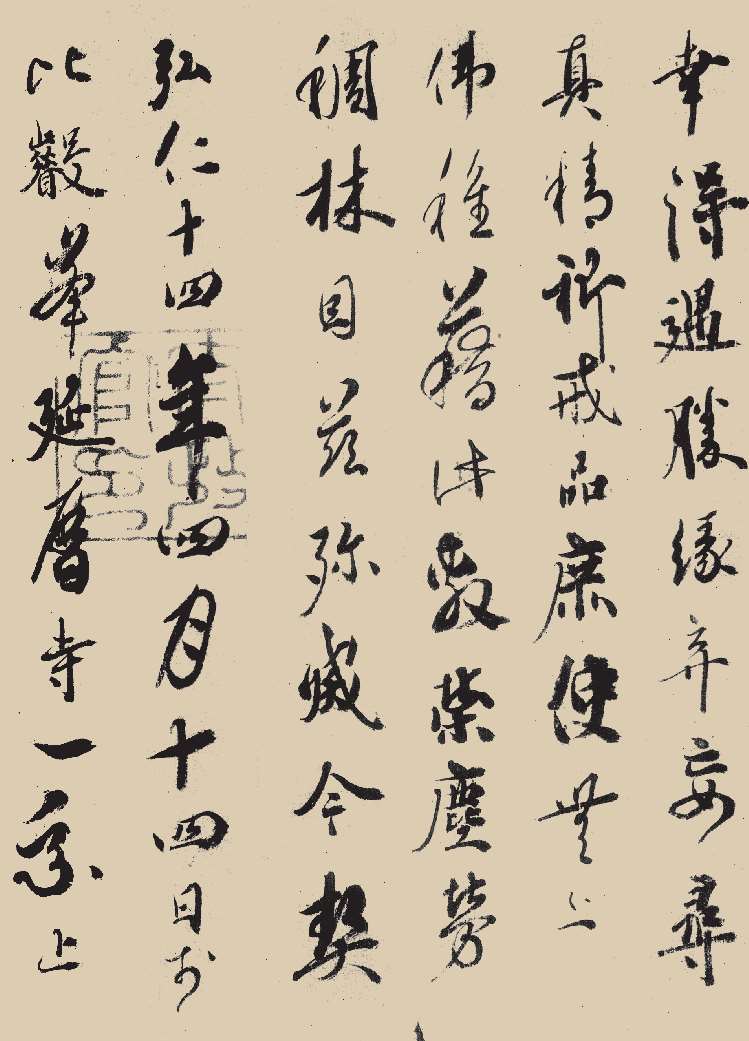 幸得遇勝縁弃妄尋
真精御戒品庶使無上
佛種藉此敷榮塵勞
稠林因茲殄滅今契
弘仁十四年四月十四日於
比叡峯延暦寺一乗止